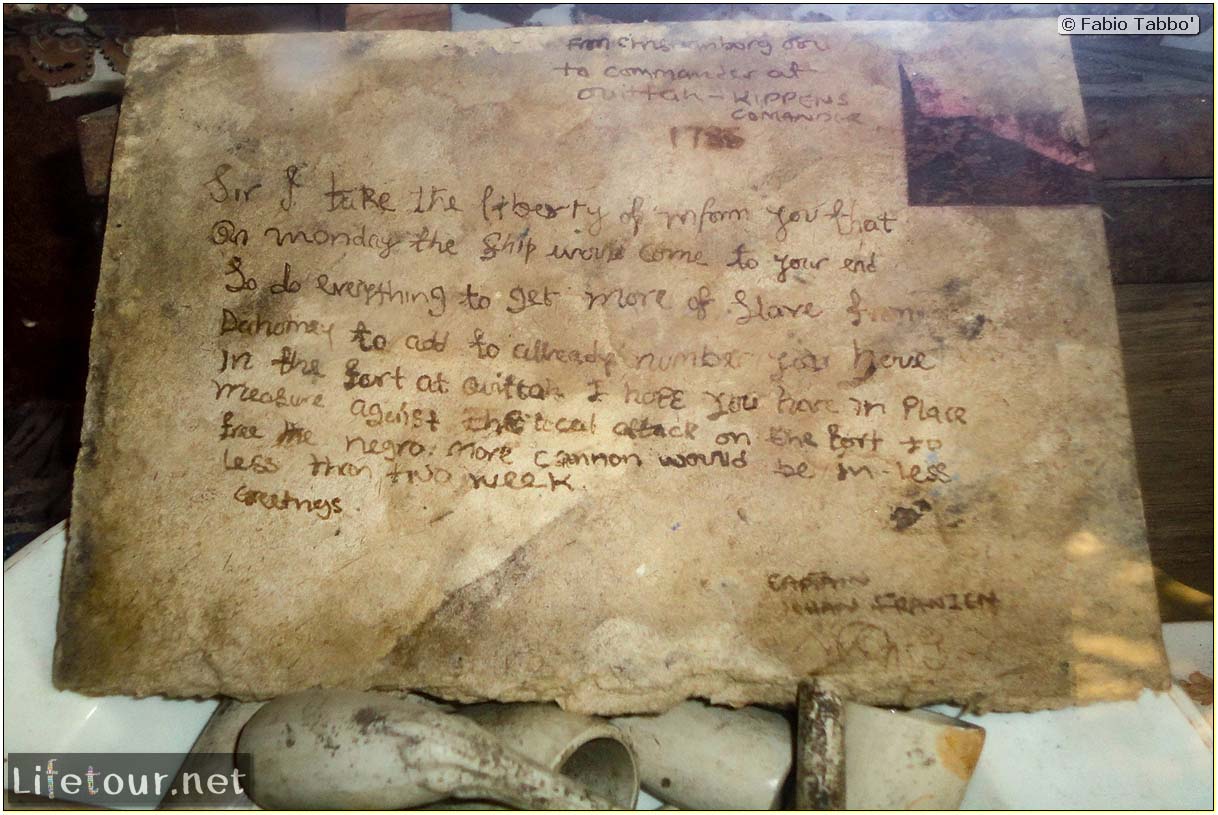 © Fabio Tabbo'
to commander at
Quittah - KIPPENS
COMANDER
Sir I take the liberty of inform you that
On monday the ship would come to your end
So do everything to get more of slave from
Dahomey to add to allready number you have
In the fort at Quittah I hope you have in place
measure against the local attack on the fort to
free the negro. more cannon would be in less
less than two week.
Greetings.
CAPTAIN
Lifetour.net